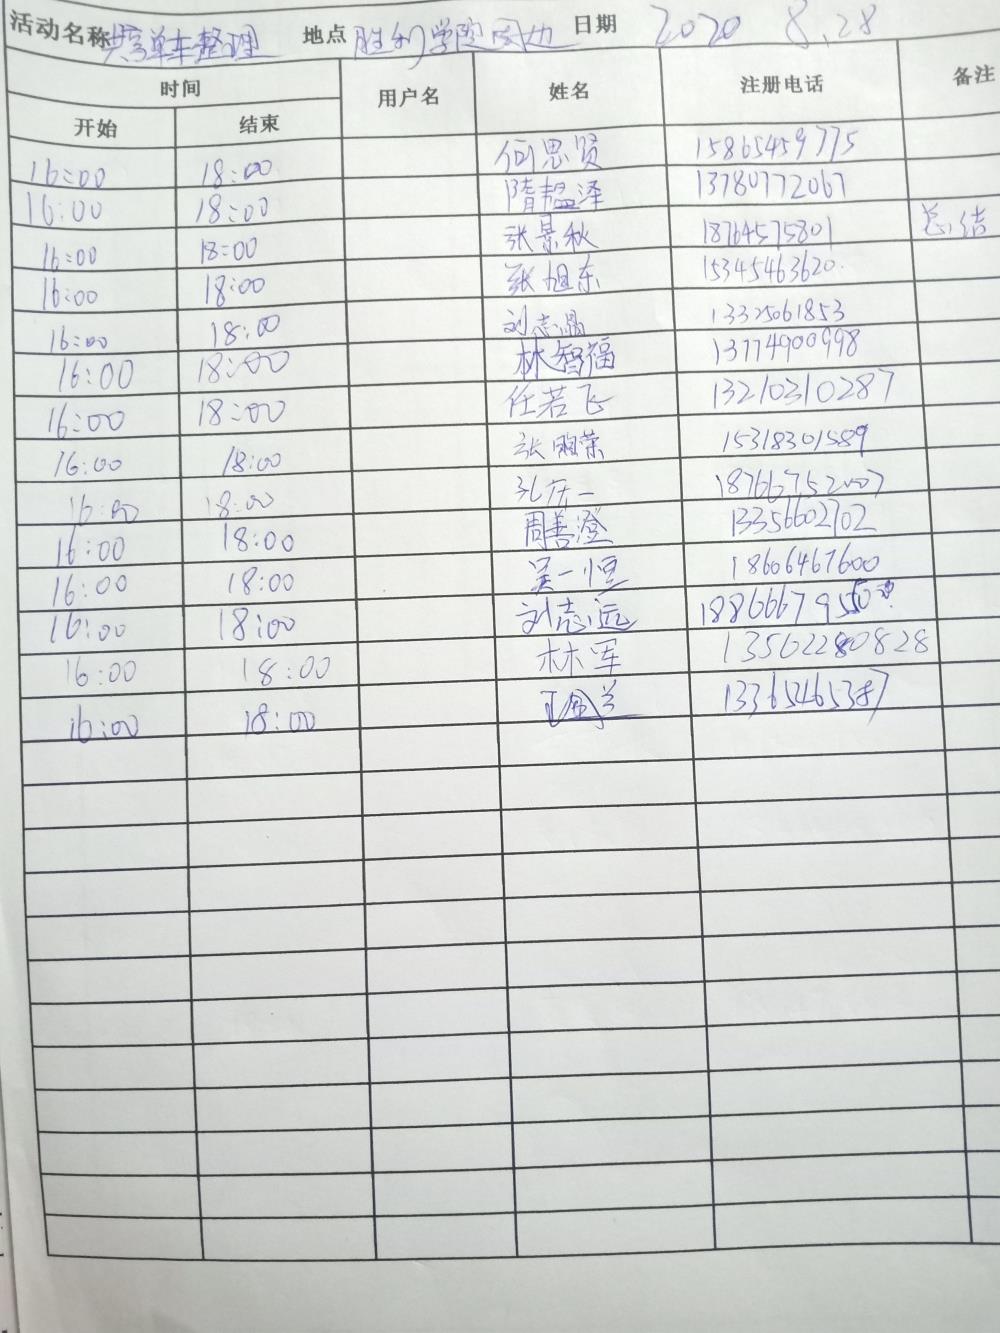 活动名称 共享单车整理 地点 胜利学院周边 日期 2020 8.28
时间 用户名 姓名 注册电话 备注
开始 结束
16:00 18:00 何思贤 15865459775
16:00 18:00 隋韫泽 13780772067
16:00 18:00 张景秋 18764575801 总结
16:00 18:00 张旭东 15345463620
16:00 18:00 刘志鼎 13325061853
16:00 18:00 林智福 13774900998
16:00 18:00 任若飞 13210310287
16:00 18:00 张荣 15318301589
16:00 18:00 孔庆一 18766752007
16:00 18:00 周善澄 13356602702
16:00 18:00 吴一恒 18606467600
16:00 18:00 刘志远
16:00 18:00 林军 13562280828
16:00 18:00 13365465387